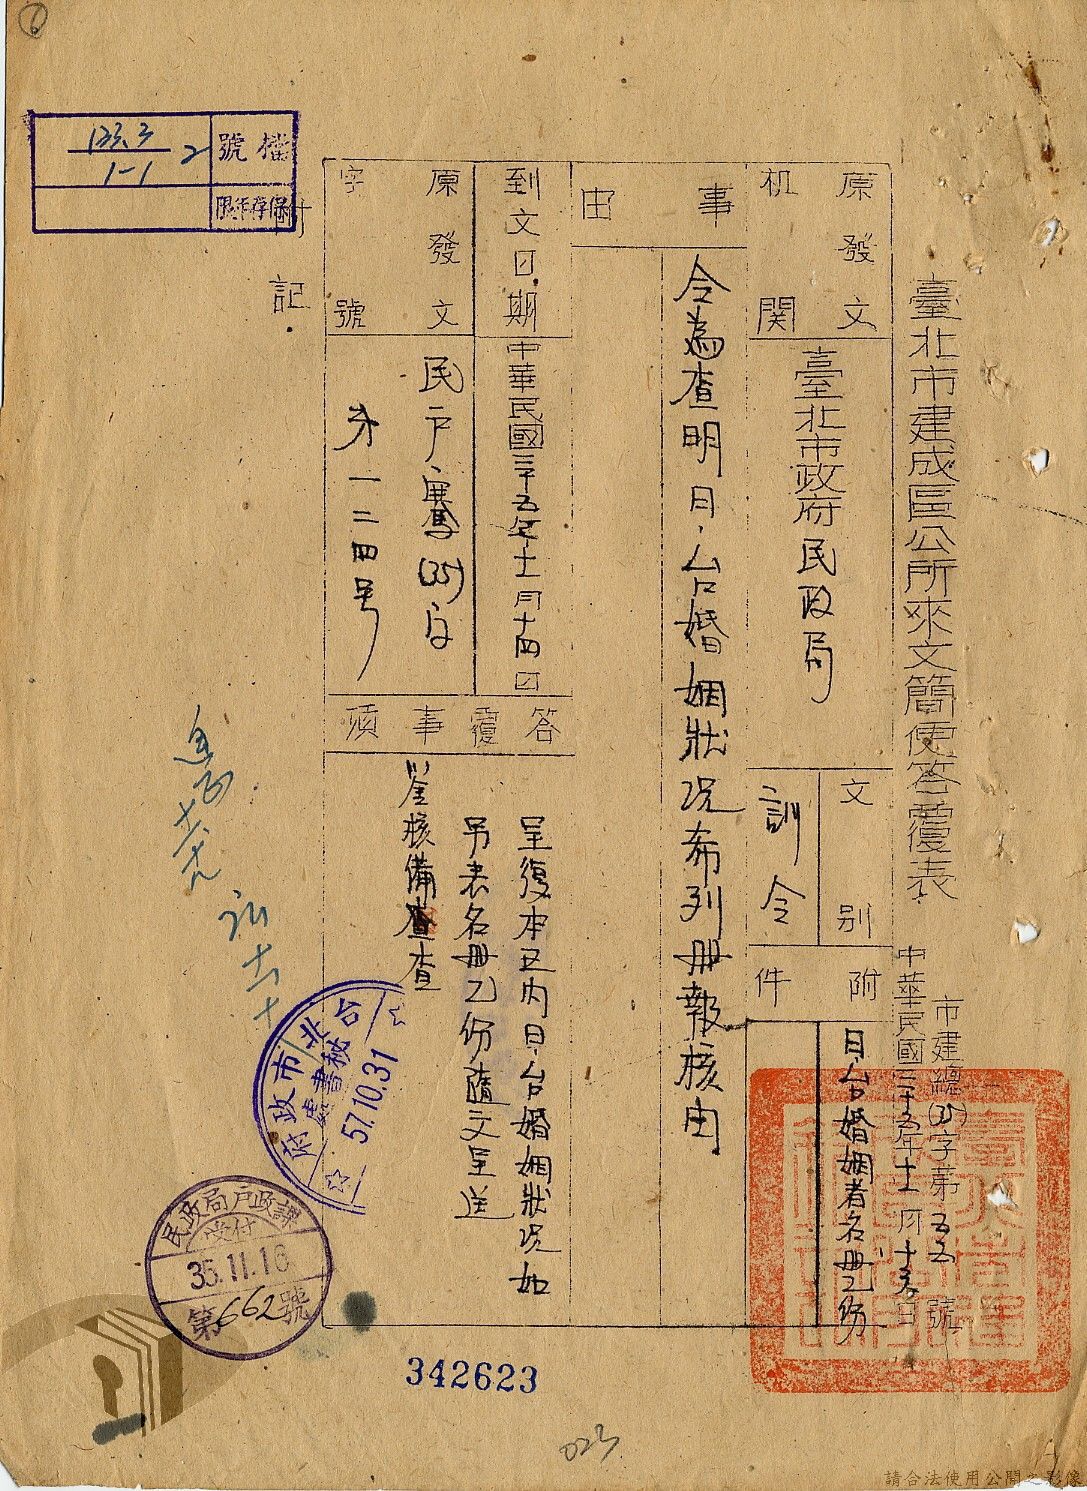 臺北市建成區公所來文簡便答覆表
市建總(35)字第一一五五號
中華民國三十五年十一月十五日
原發文机関
臺北市政府民政局
文別
訓令
附件
日、台婚姻者名冊乙份
事由
令為查明日、台婚姻狀况希列冊報核由
到文日期
中華民國三十五年十一月十四日
原發文字號
民戶騫(35)字
㐧一二四号
答覆事項
呈復本区内日、台婚姻狀况如
另表名冊乙份隨文呈送
鉴核備查
附記
檔號
133.3
1-1
2
保存年限
台北市政府
秘書處
57.10.31
民政局戶政課
受付
35.11.16
第662號
342623
023
6
請合法使用公開之影像